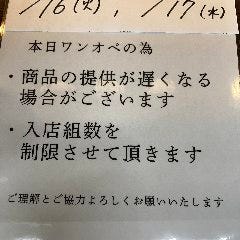 /16(火), /17
本日ワンオペの為
・商品の提供が遅くなる
場合がございます
・入店組数を
制限させて頂きます
ご理解とご協力よろしくお願いいたします